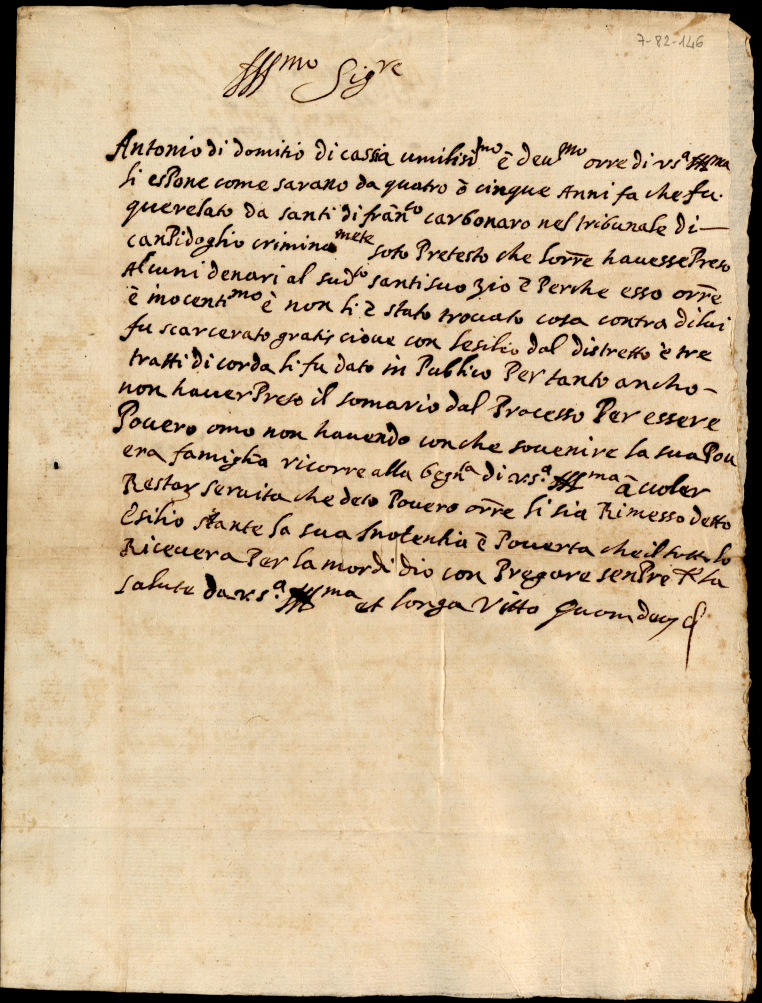 7-82-146
Illmo Sigre
Antonio di domitio di cassia umilissmo è deumo orre di vsa Illma
li espone come sarano da quatro ò cinque Anni fa che fu
querelato da santi di franco carbonaro nel tribunale di
canPidoglio criminamete soto Pretesto che lorre hauesse Preso
Alcuni denari al sudto santi suo zio è Perche esso orre
è inocentimo è non li è stato trouato cosa contra di lui
fu scarcerato gratis cioue con lesilio dal distretto è tre
tratti di corda li fu dato in Publico Per tanto ancho
non hauer Preso il somario dal Processo Per essere
Pouero omo non hauendo con che souenire la sua Pou
era famiglia ricorre alla begnta di v.sa Illma à uoler
Restar seruita che deto Pouero orre li sia Rimesso detto
Esilio stante la sua Inolentia è Pouerta che il tutto lo
Riceuera Per lamor di dio con Pregare senPre P la
salute da v.sa Illma et longa Vitto Quam deus